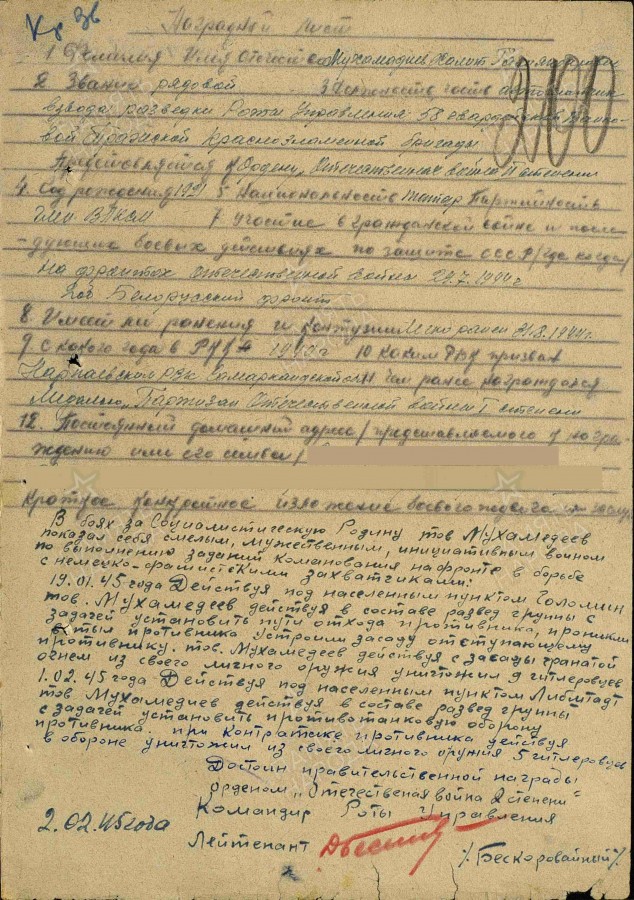 Кр Зв
Наградной лист
1 Фамилия Имя отчество Мухамадиев Халит
2 Звание рядовой 3 Должность часть автоматчик
взвода разведки Роты Управления 58 гвард. Танко
вой Пражской Краснознаменной бригады
Представляется к Ордену, Отечественная война II степени
4. Год рождения 1921 5 Национальность татар Партийность
член ВЛКСМ 7 участие в гражданской войне и после
-дующих боевых действиях по защите СССР /где когда/
На фронтах отечественной войны 29.7.1944г.
Белорусский фронт
8. Имеет ли ранения и контузии Легко ранен 21.8.1944г.
9 с какого года в РККА 1940г 10 Каким РВК призван
Нарпаевским РВК Самаркандской 11 Чем ранее награждался
Медалью „Партизан Отечественной войны I степени
12. Постоянный домашний адрес / представляемого к награ-
ждению или его семьи /
Краткое конкретное изложение боевого подвига
В боях за Социалистическую Родину тов Мухамедеев
показал себя смелым, мужественным, инициативным воином
по выполнению заданий команования на фронте в борьбе
с немецко-фашистскими захватчиками:
19.01.45 года Действуя под населенным пунктом Голомин
тов. Мухамедеев действуя в составе развед группы с
задачей установить пути отхода противника, проникли
в тыл противника устроили засаду отступающему
противнику. тов. Мухамедеев действуя с засады гранатой
огнем из своего личного оружия уничтожил 9 гитлеровцев
1.02.45 года Действуя под населенным пунктом Либштадт
тов Мухамедиев действуя в составе развед группы
с задачей установить противотанковую оборону
противника. при контратаке противника действуя
в обороне уничтожил из своего личного оружия 5 гитлеровцев
Достоин правительственной награды
орденом „Отечественая война 2 степени"
Командир Роты Управления
2.02.45 года
Лейтенант /Бескоровайный/